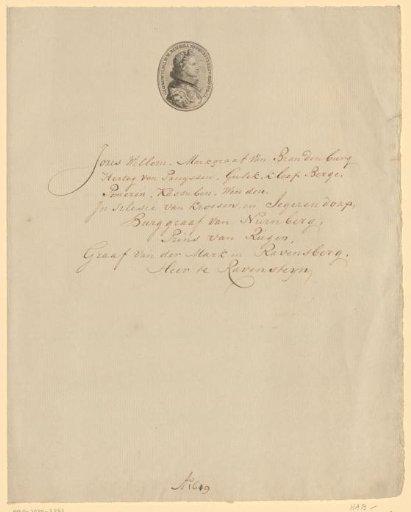 Joris Willem. Markgraaf van Brandenburg
Hertog van Pruyssen. Gulik. Kleef. Berge.
Pomeren. Kassuben. Wenden.
In Silesie van Krossen en Jegerendorp,
Burggraaf van Nurnberg,
Prins van Rugen,
Graaf van der Mark en Ravensberg,
Heer te Ravensteyn,
Ao 1619